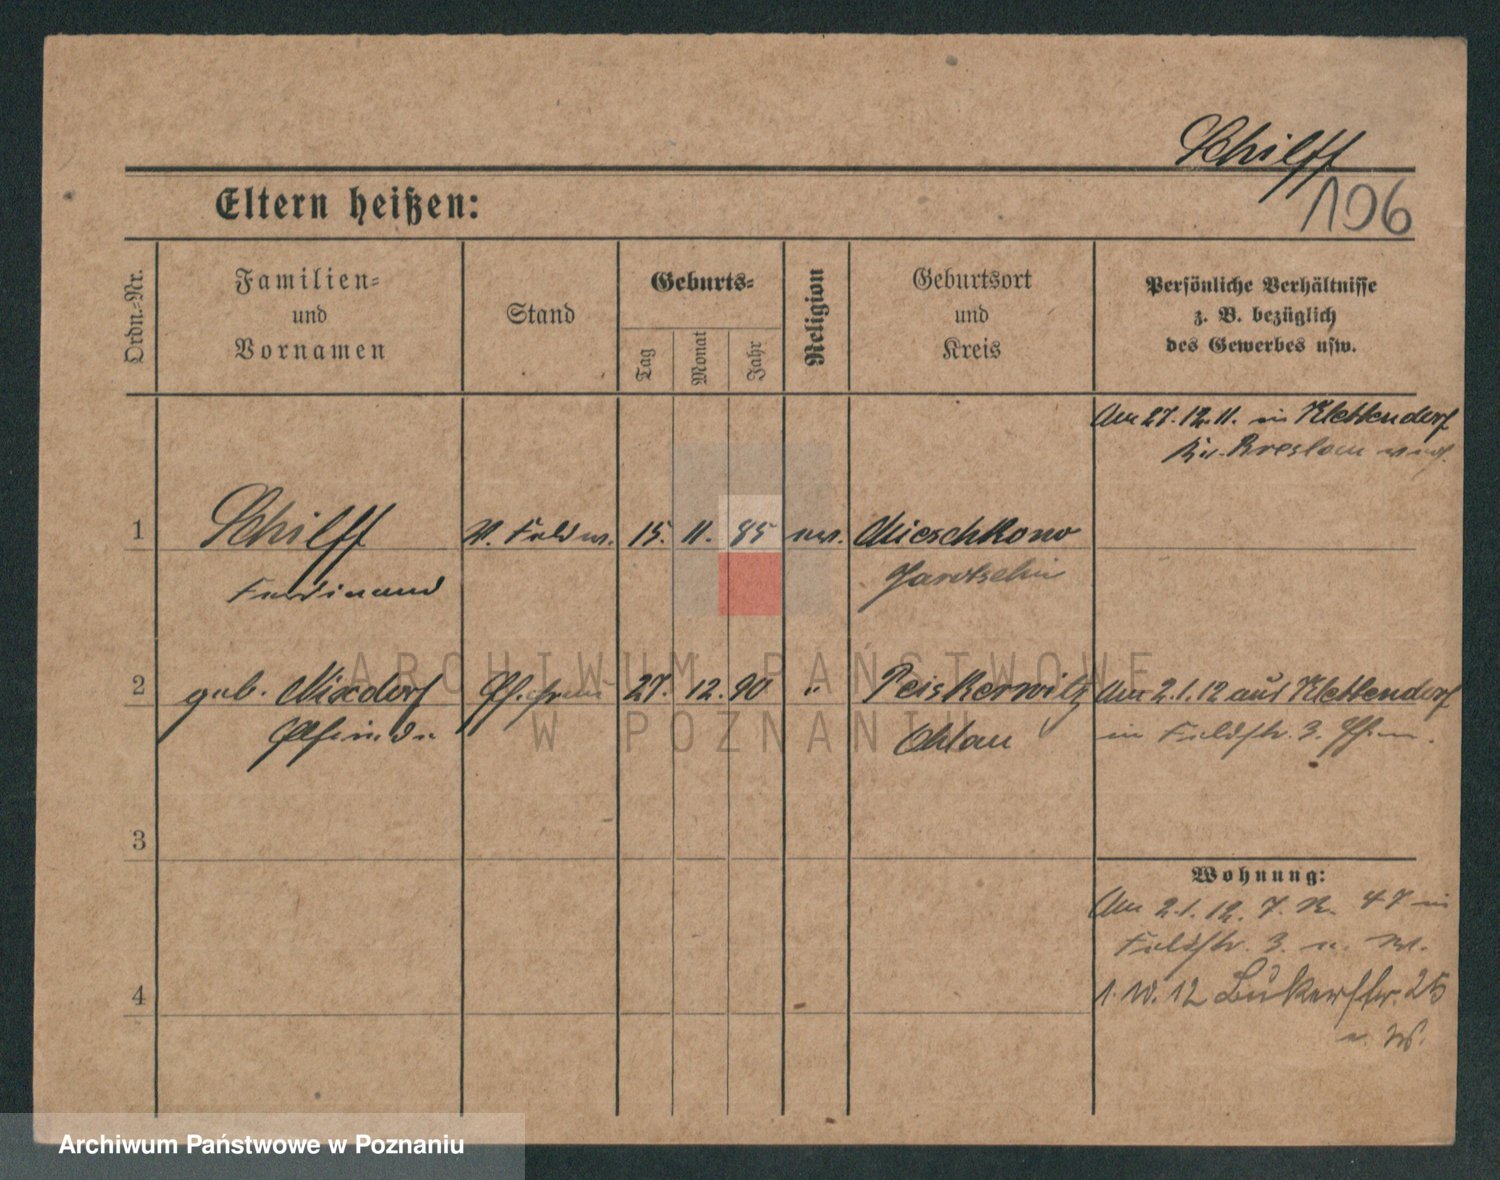 Schilff
106
Eltern heißen:
Ordn.-Nr.
Familien-
und
Vornamen
Stand
Geburts-
Tag
Monat
Jahr
Religion
Geburtsort
und
Kreis
Persönliche Verhältnisse
z. B. bezüglich
des Gewerbes usw.
Am 27.12.11. in Klettendorf
Kr. Breslau
1
Schilff
V. Feldw. 15. 11. 85 ev. Mieschkowo
Ferdinand
Jarotschin
2
geb. Nixdorf
27. 12. 90 " Peiskerwitz
Ohlau
Am 2.1.12 aus Klettendorf
in Feldstr. 3.
3
4
Wohnung:
Am 2.1.12. J. R. 47 in
Feldstr. 3. u. W.
1.10.12 Bukerstr. 25
u. W.
ARCHIWUM PAŃSTWOWE
W POZNANIU
Archiwum Państwowe w Poznaniu